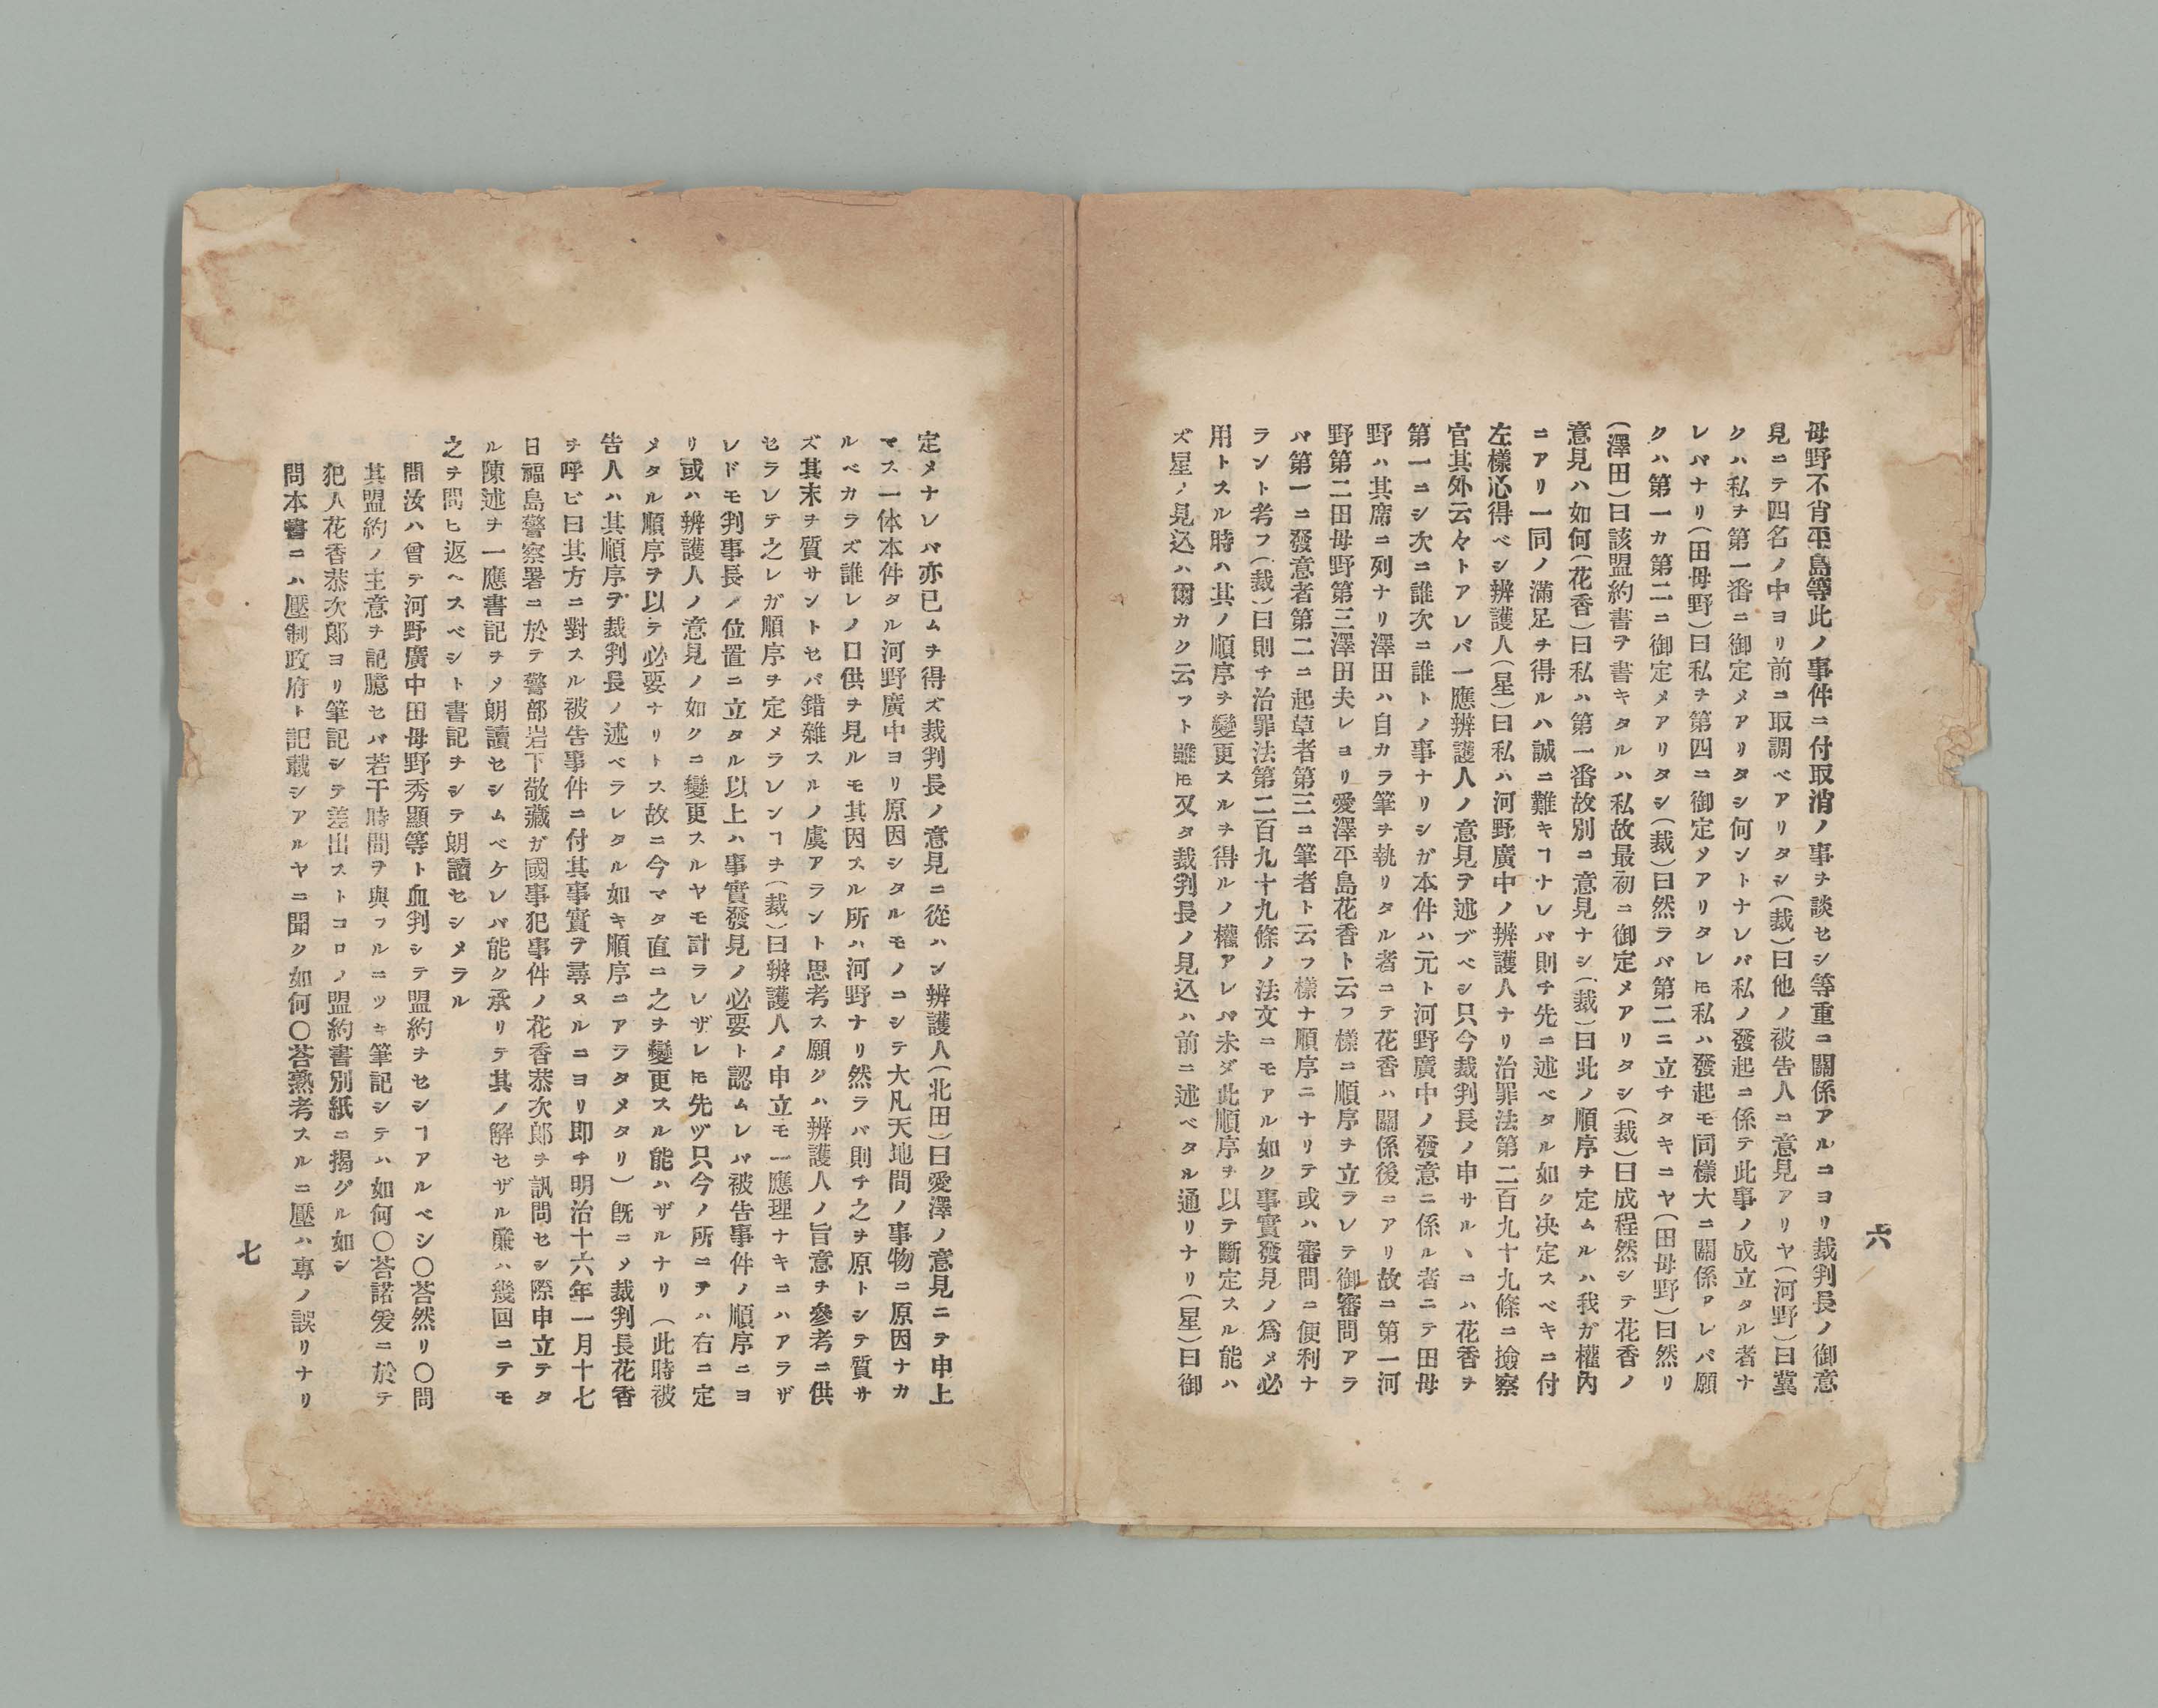 六
母野不肖平島等此ノ事件ニ付取消ノ事ヲ談セシ等重ニ關係アルニヨリ裁判長ノ御意
見ニテ四名ノ中ヨリ前ニ取調ベアリタシ(裁)曰他ノ被告人ニ意見アリヤ(河野)曰冀
クハ私ヲ第一番ニ御定メアリタシ何ントナレバ私ノ發起ニ係テ此事ノ成立タル者ナ
レバナリ(田母野)曰私ヲ第四ニ御定メアリタレ𪜈私ハ發起モ同樣大ニ關係アレバ願
クハ第一カ第二ニ御定メアリタシ(裁)曰然ラバ第二ニ立チタキニヤ(田母野)曰然リ
(澤田)曰該盟約書ヲ書キタルハ私故最初ニ御定メアリタシ(裁)曰成程然シテ花香ノ
意見ハ如何(花香)曰私ハ第一番故別ニ意見ナシ(裁)曰此ノ順序ヲ定ムルハ我ガ權內
ニアリ一同ノ滿足ヲ得ルハ誠ニ難キヿナレバ則チ先ニ述ベタル如ク决定スベキニ付
左樣心得ベシ辨護人(星)曰私ハ河野廣中ノ辨護人ナリ治罪法第二百九十九條ニ撿察
官其外云々トアレバ一應辨護人ノ意見ヲ述ブベシ只今裁判長ノ申サルヽニハ花香ヲ
第一ニシ次ニ誰次ニ誰トノ事ナリシガ本件ハ元ト河野廣中ノ發意ニ係ル者ニテ田母
野ハ其席ニ列ナリ澤田ハ自カラ筆ヲ執リタル者ニテ花香ハ關係後ニアリ故ニ第一河
野第二田母野第三澤田夫レヨリ愛澤平島花香ト云フ樣ニ順序ヲ立ラレテ御審問アラ
バ第一ニ發意者第二ニ起草者第三ニ筆者ト云フ樣ナ順序ニナリテ或ハ審問ニ便利ナ
ラント考フ(裁)曰則チ治罪法第二百九十九條ノ法文ニモアル如ク事實發見ノ爲メ必
用トスル時ハ其ノ順序ヲ變更スルヲ得ルノ權アレバ未ダ此順序ヲ以テ斷定スル能ハ
ズ星ノ見込ハ爾カク云フト雖𪜈又タ裁判長ノ見込ハ前ニ述ベタル通リナリ(星)曰御
定メナレバ亦已ムヲ得ズ裁判長ノ意見ニ從ハン辨護人(北田)曰愛澤ノ意見ニヲ申上
マス一体本件タル河野廣中ヨリ原因シタルモノニシテ大凡天地間ノ事物ニ原因ナカ
ルベカラズ誰レノ口供ヲ見ルモ其因スル所ハ河野ナリ然ラバ則チ之ヲ原トシテ質サ
ズ其末ヲ質サントセバ錯雜スルノ虞アラント思考ス願クハ辨護人ノ旨意ヲ參考ニ供
セラレテ之レガ順序ヲ定メラレンヿヲ(裁)曰辨護人ノ申立モ一應理ナキニハアラザ
レドモ判事長ノ位置ニ立タル以上ハ事實發見ノ必要ト認ムレバ被告事件ノ順序ニヨ
リ或ハ辨護人ノ意見ノ如クニ變更スルヤモ計ラレザレ𪜈先ヅ只今ノ所ニテハ右ニ定
メタル順序ヲ以テ必要ナリトス故ニ今マタ直ニ之ヲ變更スル能ハザルナリ(此時被
告人ハ其順序ヲ裁判長ノ述ベラレタル如キ順序ニアラタメタリ)旣ニ〆裁判長花香
ヲ呼ビ曰其方ニ對スル被告事件ニ付其事實ヲ尋ヌルニヨリ即チ明治十六年一月十七
日福島警察署ニ於テ警部岩下敬藏ガ國事犯事件ノ花香恭次郎ヲ訊問セシ際申立テタ
ル陳述ヲ一應書記ヲ〆朗讀セシムベケレバ能ク承リテ其ノ解セザル廉ハ幾回ニテモ
之ヲ問ヒ返ヘスベシト書記ヲシテ朗讀セシメラル
問汝ハ曾テ河野廣中田母野秀顯等ト血判シテ盟約ヲセシヿアルベシ〇荅然リ〇問
其盟約ノ主意ヲ記臆セバ若干時間ヲ與フルニツキ筆記シテハ如何〇荅諾爰ニ於テ
犯人花香恭次郎ヨリ筆記シテ差出ストコロノ盟約書別紙ニ揭グル如シ
問本書ニハ壓制政府ト記載シアルヤニ聞ク如何〇荅熟考スルニ壓ハ專ノ誤リナリ
七